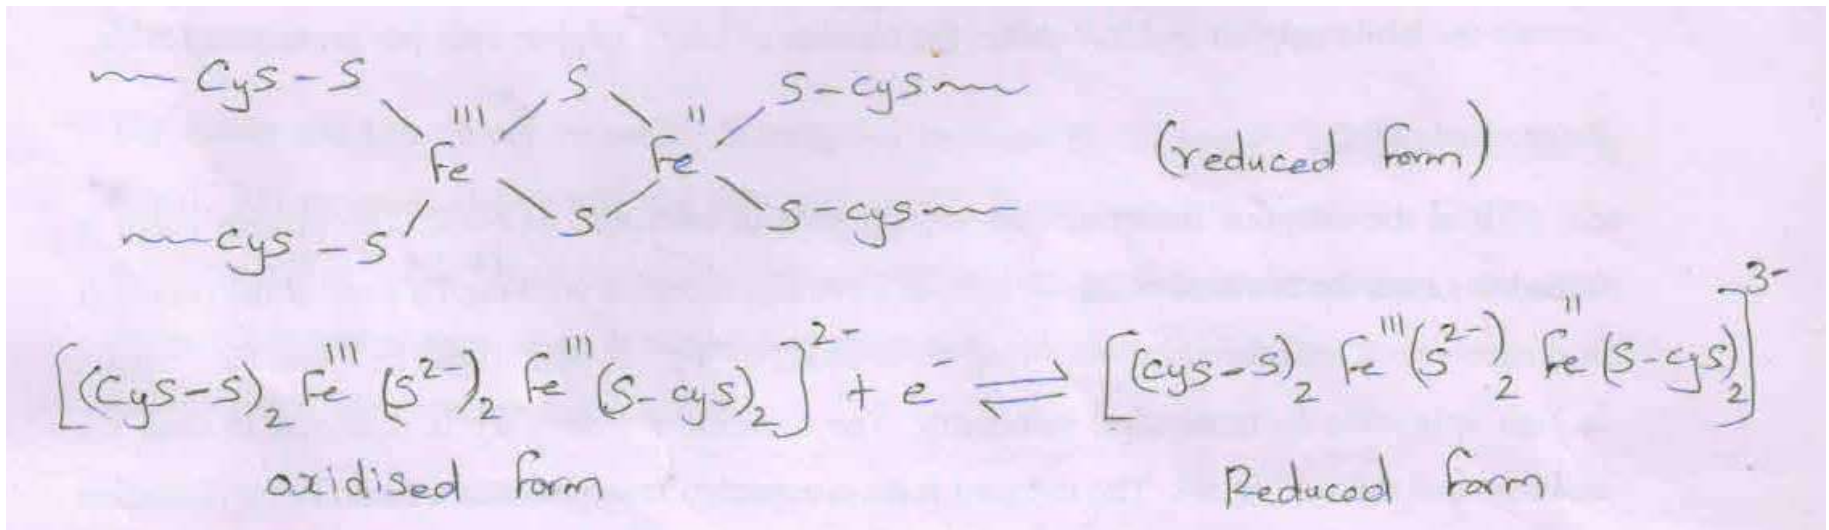 Cys - S S S - cys
III II
Fe Fe (reduced form)
cys - S S S - cys
[(Cys-S)₂ Fe^III (S²⁻)₂ Fe^III (S-cys)₂]²⁻ + e⁻ ⇌ [(cys-S)₂ Fe^III (S²⁻)₂ Fe^II (S-cys)₂]³⁻
oxidised form Reduced form